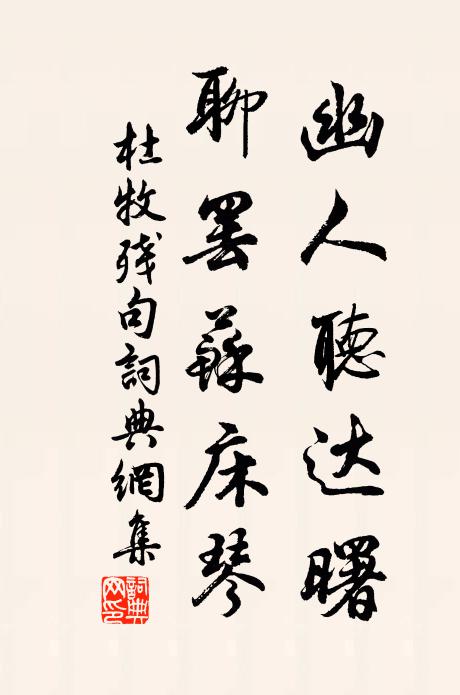 幽人聽达曙
聊罢蘇床琴
杜牧残句詞典網集
詞典网印